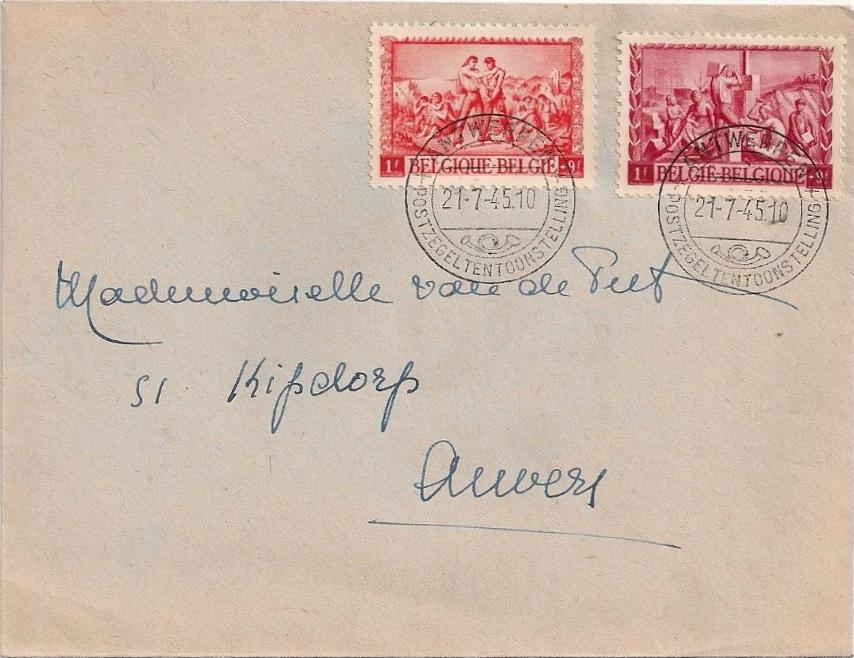 1F BELGIQUE-BELGIË +9F
1F BELGIË-BELGIQUE +9F
ANTWERPEN
21-7-45.10
POSTZEGELTENTOONSTELLING
ANTWERPEN
21-7-45.10
POSTZEGELTENTOONSTELLING
Mademoiselle van de Put
51 Kipdorp
Anvers